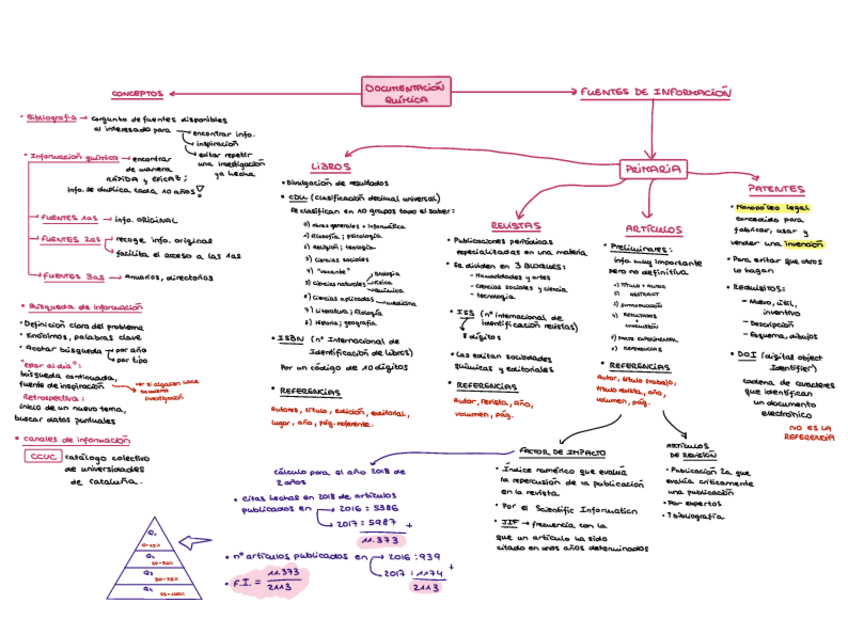 DOCUMENTACIÓN
QUÍMICA
CONCEPTOS
• Bibliografía → conjunto de fuentes disponibles
al interesado para → encontrar info.
→ inspiración
→ evitar repetir
una investigación
ya hecha
• Información química → encontrar
de manera
RÁPIDA y EFICAZ;
info. se duplica cada 10 años!
FUENTES 1as → info. ORIGINAL
FUENTES 2as → recoge info. original
→ facilita el acceso a las 1as
FUENTES 3as → anuarios, directorios
• Búsqueda de información
• Definición clara del problema
• Sinónimos, palabras clave
• Acotar búsqueda → por año
→ por tipo
"estar al día":
búsqueda continuada,
fuente de inspiración
→ si alguien hace
investigación
Retrospectiva:
inicio de un nuevo tema,
buscar datos puntuales
• Canales de información
CCUC catálogo colectivo
de universidades
de Cataluña.
FUENTES DE INFORMACIÓN
PRIMARIA
LIBROS
• Divulgación de resultados
• CDU (clasificación decimal universal)
Se clasifican en 10 grupos todo el saber:
0) Obras generales + informática
1) Filosofía; psicología
2) Religión; teología
3) Ciencias sociales
4) "vacante"
5) Ciencias naturales → biología
→ física
→ química
6) Ciencias aplicadas → medicina
7)
8) Literatura; filología
9) Historia; geografía
• ISBN (nº Internacional de
Identificación de Libros)
Por un código de 10 dígitos
• REFERENCIAS
Autores, título, edición, editorial,
lugar, año, pág. referente.
REVISTAS
• Publicaciones periódicas
especializadas en una materia
• Se dividen en 3 BLOQUES:
- Humanidades y artes
- Ciencias sociales y ciencia
- Tecnología
• ISS (nº internacional de
identificación revistas)
8 dígitos
• Las editan sociedades
químicas y editoriales
• REFERENCIAS
Autor, revista, año,
volumen, pág.
ARTÍCULOS
• Preliminares:
info muy importante
pero no definitiva
1) TÍTULO + AUTOR
2) ABSTRACT
3) INTRODUCCIÓN
4) RESULTADOS
+
CONCLUSIÓN
5) PARTE EXPERIMENTAL
6) REFERENCIAS
• REFERENCIAS
Autor, título trabajo,
título revista, año,
volumen, pág.
PATENTES
• Monopolio legal
concedido para
fabricar, usar y
vender una invención
• Para evitar que otros
lo hagan
• Requisitos:
- Nuevo, útil,
inventivo
- Descripción
- Esquema, dibujos
• DOI (digital object
Identifier)
cadena de caracteres
que identifican
un documento
electrónico
NO ES LA
REFERENCIA
FACTOR DE IMPACTO
• Índice numérico que evalúa
la repercusión de la publicación
en la revista
• Por el Scientific Information
• JIF → frecuencia con la
que un artículo ha sido
citado en unos años determinados
ARTÍCULOS
DE REVISIÓN
• Publicación 2a que
evalúa críticamente
una publicación
• Por expertos
• ↑ bibliografía
Cálculo para el año 2018 de
2 años
• Citas hechas en 2018 de artículos
publicados en → 2016: 5386
→ 2017: 5987 +
11.373
• nº artículos publicados en → 2016: 939
→ 2017: 1174 +
2113
• F.I. = 11.373
2113
Q1
Q2
25-50%
Q3
50-75%
Q4
75-100%